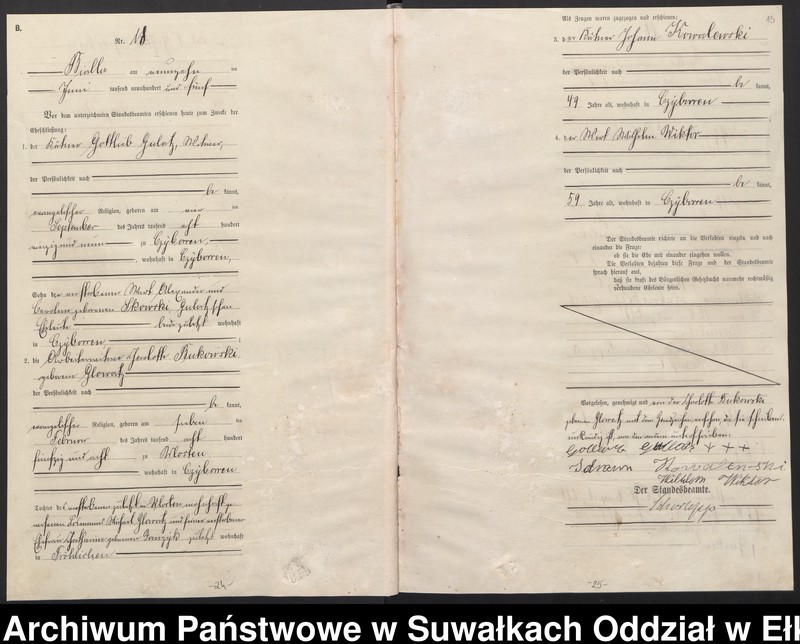 B.
Nr. 18
Bialla am neunzehn ten
Juni tausend neunhundert und fünf
Vor dem unterzeichneten Standesbeamten erschienen heute zum Zweck der
Eheschließung:
1. der Kätner Gottlieb Gulatz, Witwer,
der Persönlichkeit nach
be kannt,
evangelischer Religion, geboren am vier ten
September des Jahres tausend acht hundert
zu Czyborren
, wohnhaft in Czyborren,
Sohn des verstorbenen Wirt Alexander und
geborenen Skowrski, Gulatz'schen
Eheleute beide zuletzt wohnhaft
in Czyborren ;
2. die Arbeiterwitwe Charlotte Bukowski
geborene Glowatz
der Persönlichkeit nach
be kannt,
evangelischer Religion, geboren am sieben ten
Februar des Jahres tausend acht hundert
fünfzig und acht zu Worten
wohnhaft in Czyborren
Tochter des verstorbenen zuletzt in Worten wohnhaft ge-
wesenen Glowatz und seiner verstorbenen
Ehefrau geborenen zuletzt wohnhaft
in Fröhlichen
-24-
Als Zeugen waren zugezogen und erschienen:
15
3. der Kätner Johann Kowalewski
der Persönlichkeit nach
be kannt,
49 Jahre alt, wohnhaft in Czyborren
;
4. der Wirt Wilhelm Wiktor
der Persönlichkeit nach
be kannt,
59 Jahre alt, wohnhaft in Czyborren
Der Standesbeamte richtete an die Verlobten einzeln und nach
einander die Frage:
ob sie die Ehe mit einander eingehen wollen.
Die Verlobten bejahten diese Frage und der Standesbeamte
sprach hierauf aus,
daß sie kraft des Bürgerlichen Gesetzbuchs nunmehr rechtmäßig
verbundene Eheleute seien.
Vorgelesen, genehmigt und von der Charlotte Bukowski
geborene Glowatz mit dem Handzeichen versehen, da sie schreibens-
unkundig ist, von den andern unterschrieben:
Gottlieb Gulatz + + +
Johann Kowalewski
Wilhelm Wiktor
Der Standesbeamte.
-25-
Archiwum Państwowe w Suwałkach Oddział w Eł